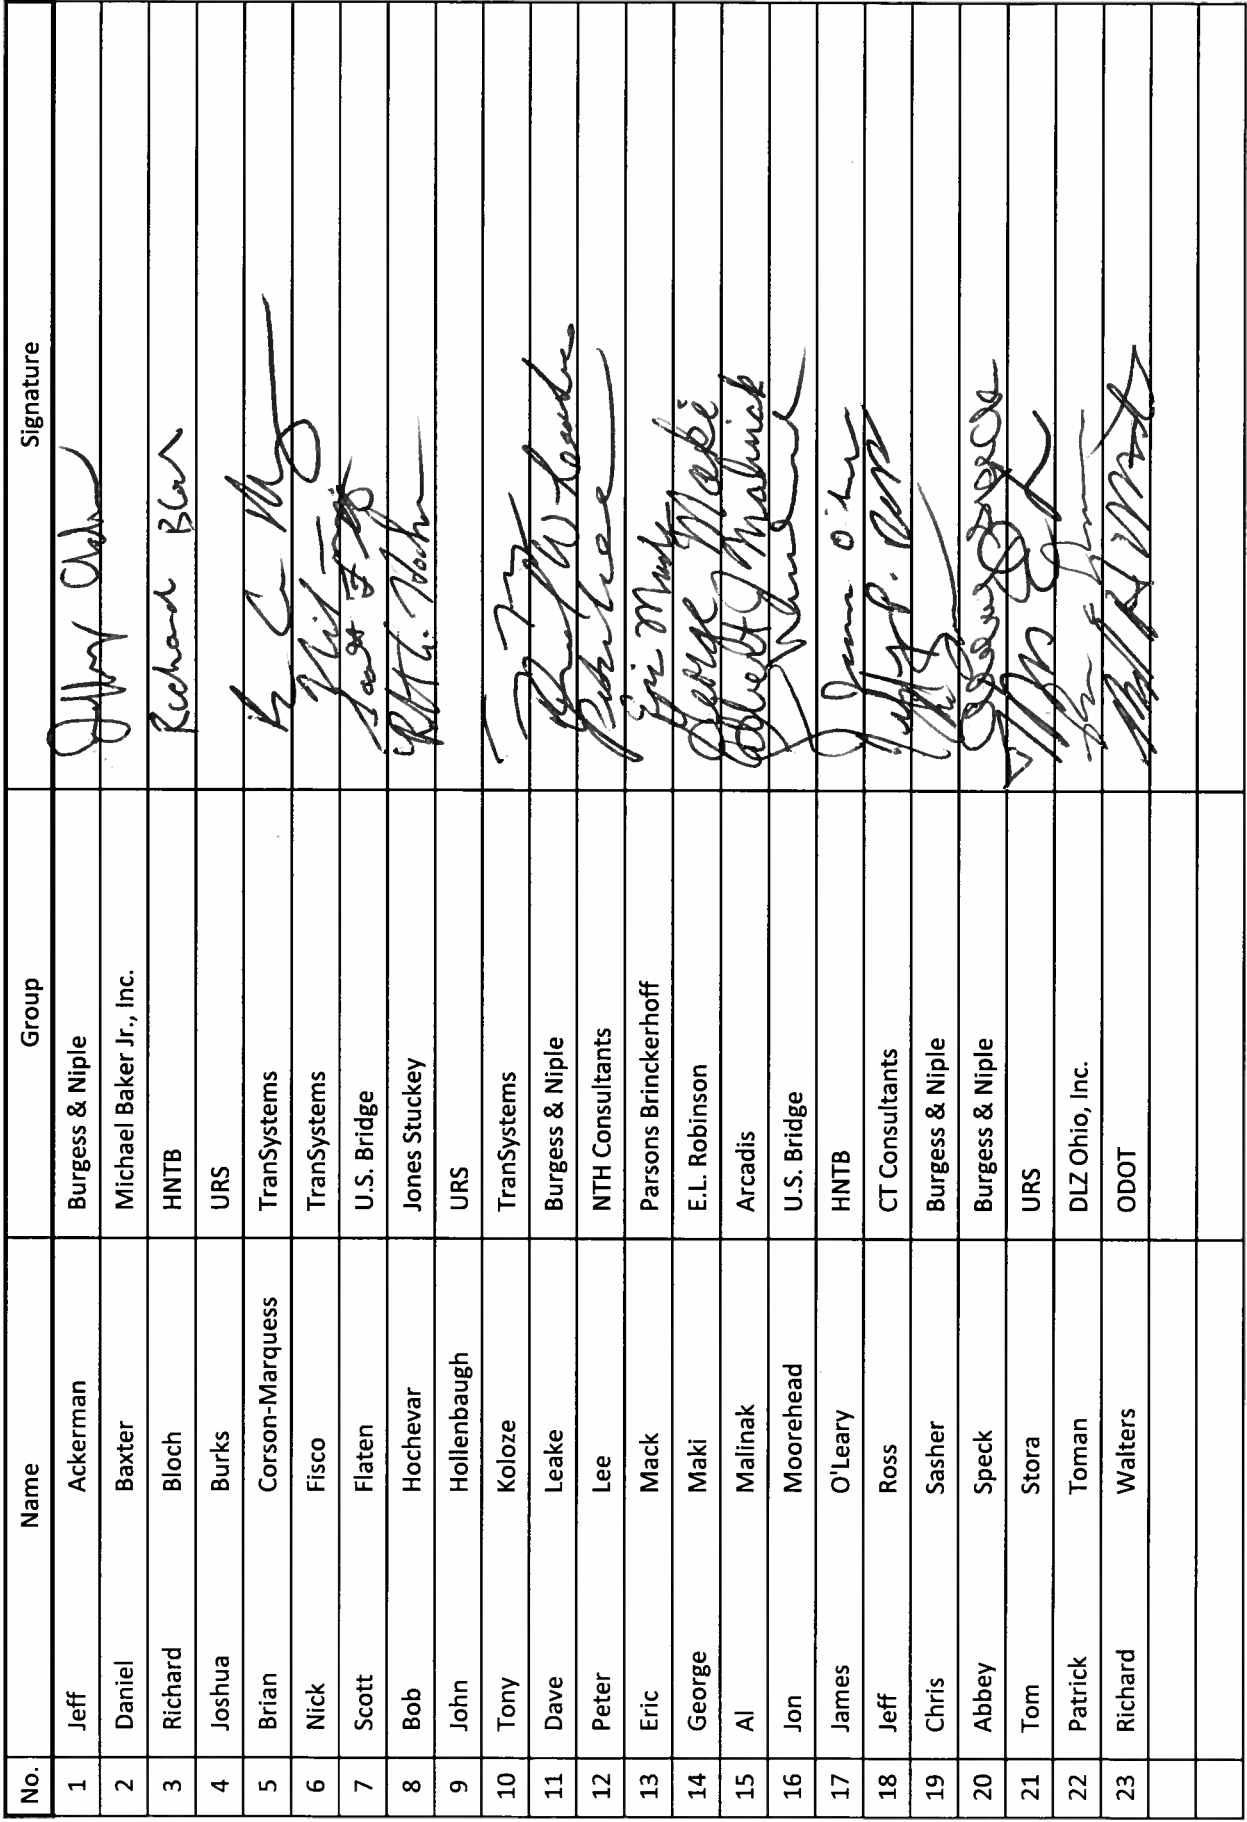 No. Name Group Signature
1 Jeff Ackerman Burgess & Niple
2 Daniel Baxter Michael Baker Jr., Inc.
3 Richard Bloch HNTB Richard
4 Joshua Burks URS
5 Brian Corson-Marquess TranSystems
6 Nick Fisco TranSystems
7 Scott Flaten U.S. Bridge
8 Bob Hochevar Jones Stuckey
9 John Hollenbaugh URS
10 Tony Koloze TranSystems
11 Dave Leake Burgess & Niple
12 Peter Lee NTH Consultants Peter Lee
13 Eric Mack Parsons Brinckerhoff Eric Mack
14 George Maki E.L. Robinson George Maki
15 Al Malinak Arcadis Albert J Malinak
16 Jon Moorehead U.S. Bridge
17 James O'Leary HNTB James
18 Jeff Ross CT Consultants
19 Chris Sasher Burgess & Niple
20 Abbey Speck Burgess & Niple
21 Tom Stora URS
22 Patrick Toman DLZ Ohio, Inc.
23 Richard Walters ODOT